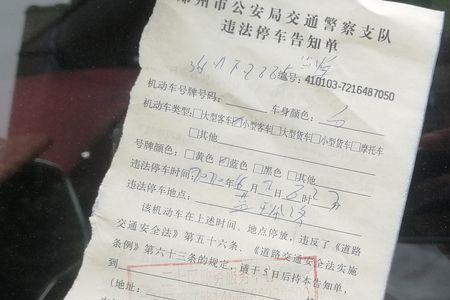 州市公安局交通警察支队
违法停车告知单
编号: 410103-7216487050
机动车号牌号码: 车身颜色: 白
机动车类型:□大型客车☑小型客车□大型货车□小型货车□摩托车
□其他
号牌颜色: □黄色 ☑蓝色 □黑色 □其他
违法停车时间: 年 月 日 时
违法停车地点:
该机动车在上述时间、地点停放,违反了《道路
交通安全法》第五十六条、《道路交通安全法实施
条例》第六十三条的规定,请于 日后持本告知单,
到
(地址: